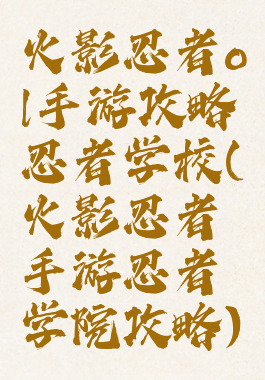 火影忍者。
|手游攻略
忍者学校(
火影忍者
手游忍者
学院攻略)